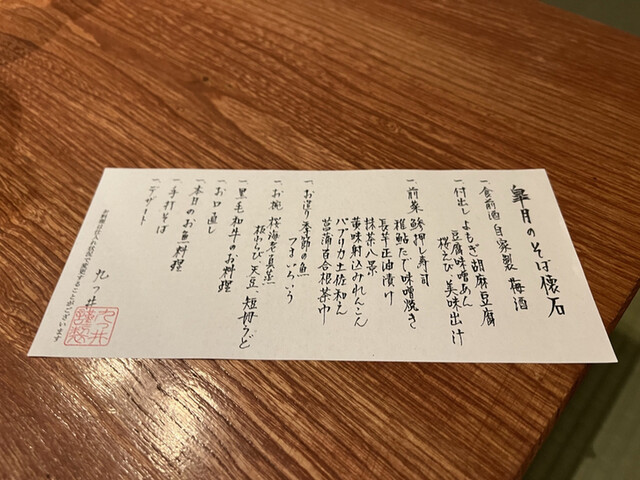 皐月のそば懐石
一 食前酒 自家製 梅酒
一 付出し よもぎ胡麻豆腐
豆腐味噌あん
桜えび 美味出汁
一 前菜 鯵押し寿司
稚鮎たで味噌焼き
長芋正油漬け
抹茶八景
黄味射込みれんこん
パプリカ土佐和え
菖蒲百合根茶巾
一 お造り 季節の魚
つまいろいろ
一 お椀 桜海老真蒸
板わらび 天豆 短冊うど
一 黒毛和牛のお料理
一 お口直し
一 本日のお魚料理
一 手打そば
一 デザート
お料理は仕入れ状況で変更することがございます
九つ井